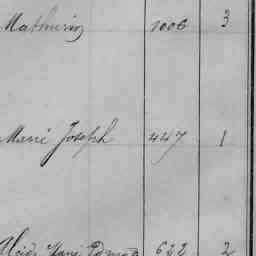 Mathurin 1006 3
Marie Joseph 447 1
622 2